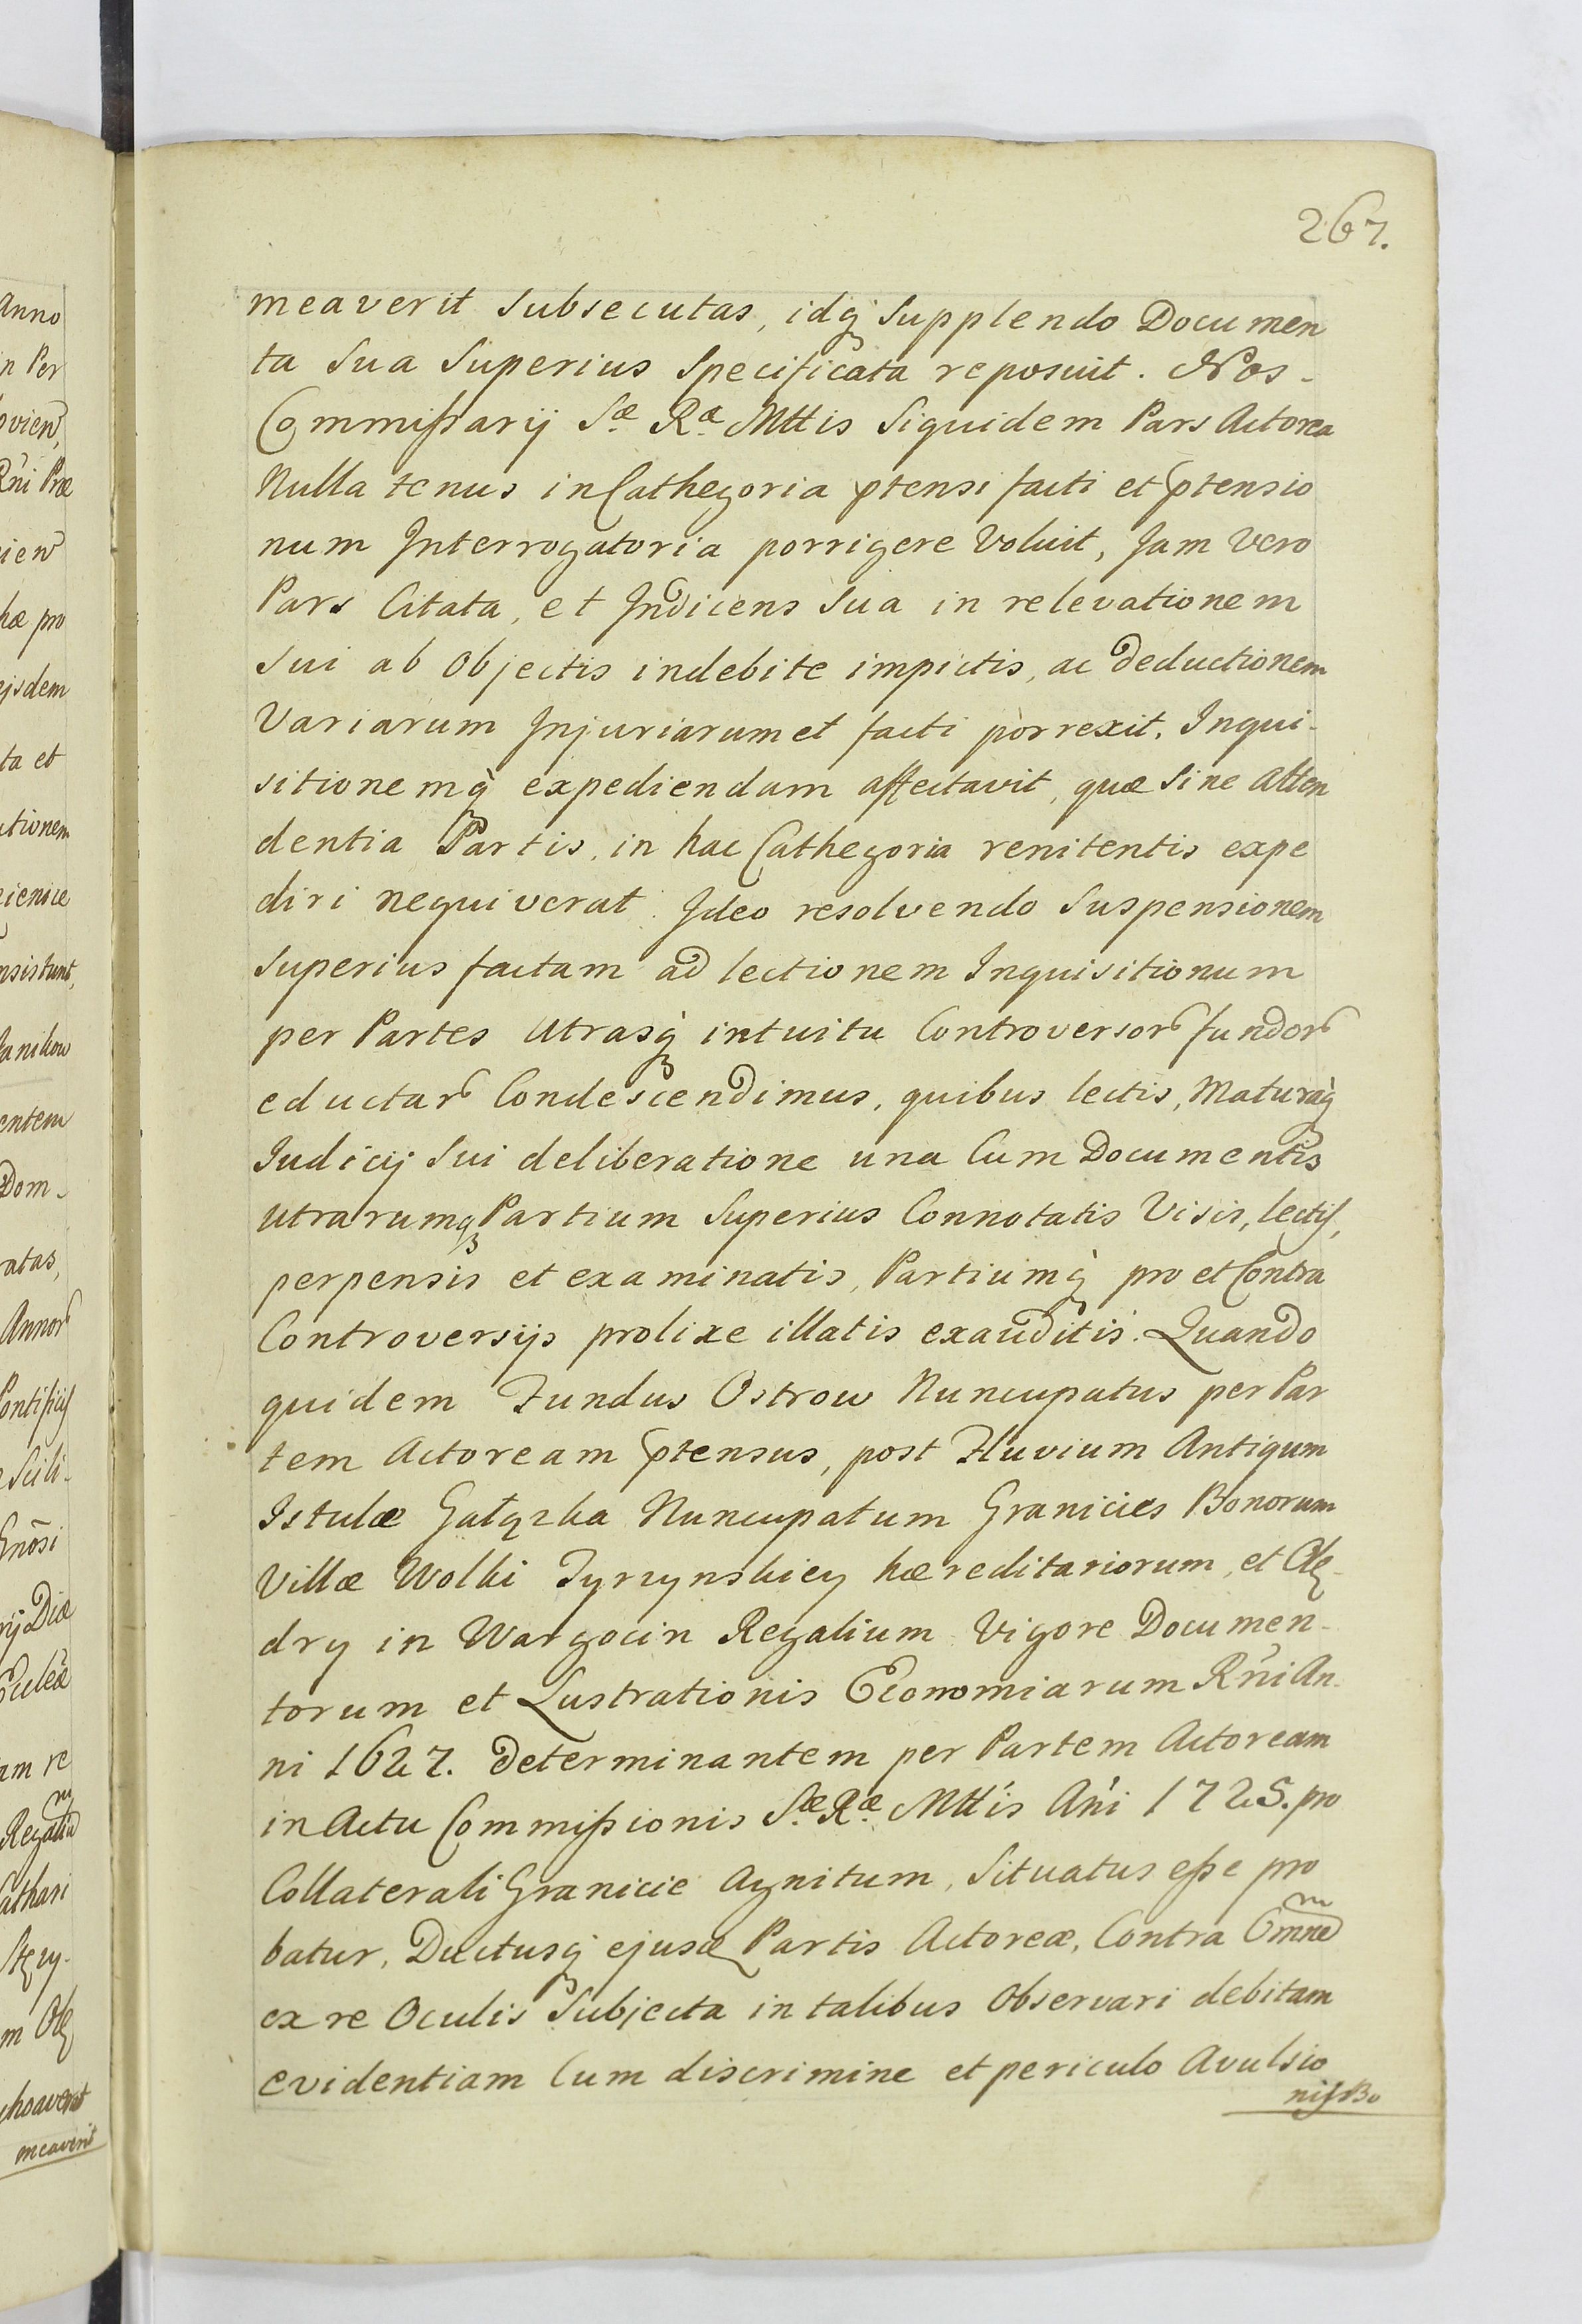 267.
meaverit Subsecutas, idq; Supplendo Documen
ta Sua Superius Specificata reposuit. Nos
Commissarij Sæ Ræ Mttis Siquidem Pars Actorea
Nulla tenus in Cathegoria ptensi facti et ptensio
num Interrogatoria porrigere Voluit, Jam Vero
Pars Citata, et Indicens Sua in relevationem
Sui ab Objectis indebite impictis, ac Deductionem
Variarum Injuriarum et facti porrexit, Inqui-
sitionemq; expediendam affectavit, quæ Sine Atten
dentia Partis, in hac Cathegoria renitentis expe
diri nequiverat. Ideo resolvendo Suspensionem
Superius factam ad lectionem Inquisitionum
per Partes Utrasq; intuitu Controversor fundor
eductar Condescendimus, quibus lectis, Maturaq;
Iudicij Sui deliberatione una Cum Documentis
Utrarumq; Partium Superius Connotatis Visis, lectis,
perpensis et examinatis, Partiumq; pro et Contra
Controversijs prolixe illatis exauditis. Quando
quidem Fundus Ostrow Nuncupatus per Par
tem Actoream ptensus, post Fluvium Antiqum
Istulæ Gałązka Nuncupatum Granicies Bonorum
Villæ Wolki Tyrzynskiey hæreditariorum, et Olę-
dry in Wargocin Regalium Vigore Documen-
torum et Lustrationis Economiarum Rñi An-
ni 1627. Determinantem per Partem Actoream
in Actu Commissionis Sæ Ræ Mttis Añi 1725. pro
Collaterali Granicie Agnitum, Situatus esse pro
batur, Ductusq; ejusd Partis Actoreæ, Contra Omnem
ex re Oculis Subjecta in talibus Observari debitam
evidentiam Cum discrimine et periculo Avulsio
nis Bo
anno
n Per
ovien
Rñi Præ
ien
hæ pro
ejsdem
ta et
utionem
ienice
nsistunt,
anikow
entem
Dom-
ratas,
Annor
Pontificis
Scili-
Gnosi
rij Diæ
am re
Cathari
m Olę
choaverat
meaverit